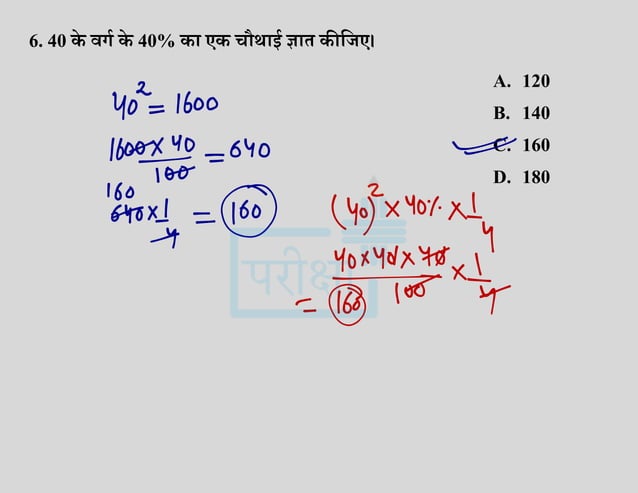 6. 40 के वर्ग के 40% का एक चौथाई ज्ञात कीजिए।
A. 120
B. 140
C. 160
D. 180
40² = 1600
1600 × 40 / 100 = 640
160
640 × 1/4 = 160
(40)² × 40% × 1/4
40 × 40 × 40 / 100 × 1/4
= 160
परीक्षा